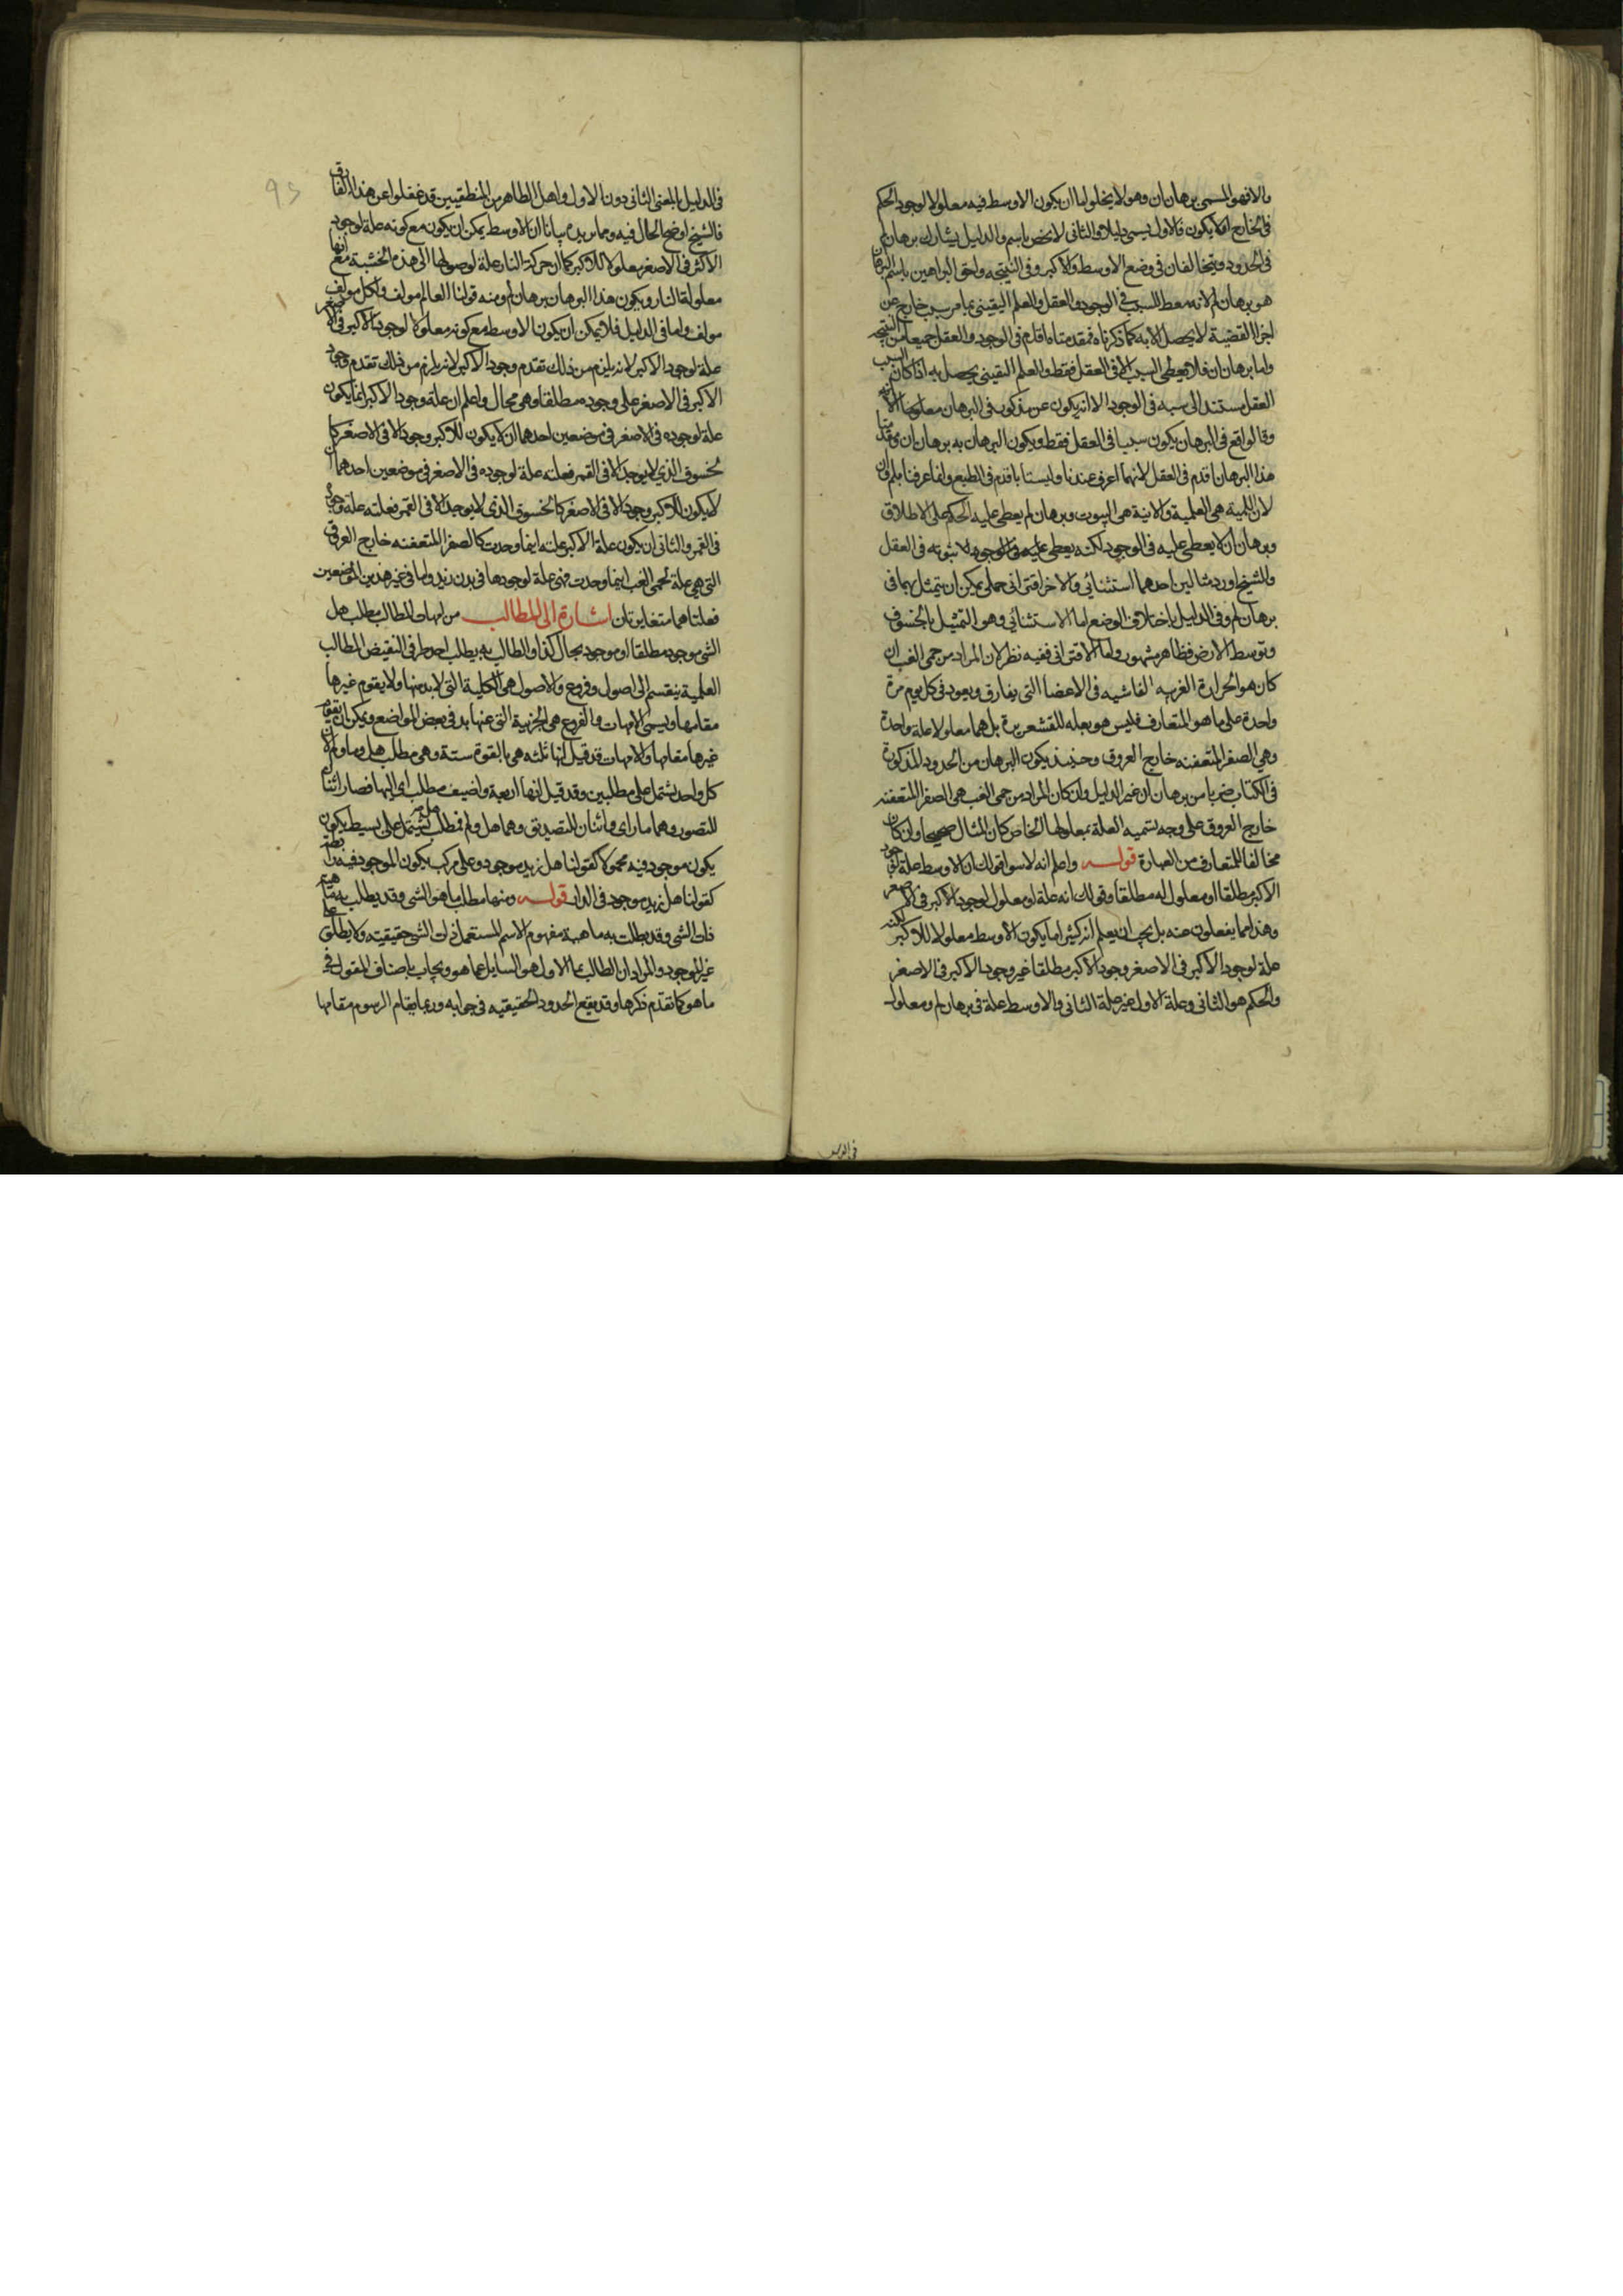 والا فهو المسمى برهان ان وهو لا يخلو اما ان يكون الاوسط فيه معلولا لوجود الحكم
في الخارج او لا يكون فالاول يسمى دليلا والثاني لا يخص باسم والدليل يشارك برهان لم
في الحدود ويتخالفان في وضع الاوسط والاكبر وفي النتيجة واحق البراهين باسم البرهان
هو برهان لم لانه معط للسبب في الوجود والعقل والعلم اليقيني بما مر سبب خارج عن
اجزا القضية لا يحصل الا به كما ذكرناه فمقدمتاه اقدم في الوجود والعقل جميعا من النتيجة
واما برهان ان فلا يعطي السبب الا في العقل فقط والعلم اليقيني يحصل به اذا كان السبب
العقل مستند الى سببه في الوجود الا انه يكون عن مذكور في البرهان معلولها
وقالواقع في البرهان يكون سببا في العقل فقط ويكون البرهان به برهان ان ومقدمتا
هذا البرهان اقدم في العقل لانهما اعرف عندنا وليستا باقدم في الطبع وانما عرفنا بلم وان
لان اللمية هي العلية والانية هي الثبوت وبرهان لم يعطي علية الحكم على الاطلاق
وبرهان ان لا يعطي علية في الوجود لكنه يعطي علية في الوجود لا ثبوته في العقل
والشيخ اورد مثالين احدهما استثنائي والاخر اقتراني حملي يمكن ان يتمثل بهما في
برهان لم وفي الدليل باختلاف الوضع اما الاستثنائي وهو التمثيل بالخسوف
وتوسط الارض فظاهر مشهور واما الاقتراني ففيه نظر لان المراد من حمى الغب ان
كان هو الحرارة الغريبه الفاشيه في الاعضا التي يفارق ويعود في كل يوم مرة
واحدة على ما هو المتعارف فليس هو بعله للقشعريرة بل هما معلولا علة واحدة
وهي الصفرا المتعفنه خارج العروق وحينيذ يكون البرهان من الحدود المذكورة
في الكتاب ضربا من برهان ان غير الدليل وان كان المراد من حمى الغب هي الصفرا المتعفنه
خارج العروق على وجه تسميه العلة بمعلولها الخاص كان المثال صحيحا وان كان
مخالفا للمتعارف من العبارة قوله واعلم انه لا سوا قولك ان الاوسط علة لوجود
الاكبر مطلقا او معلول له مطلقا وقولك انه علة او معلول لوجود الاكبر في الاصغر
وهذا مما يغفلون عنه بل يجب ان يعلم انه كثيرا ما يكون الاوسط معلولا للاكبر لكنه
علة لوجود الاكبر في الاصغر وجود الاكبر مطلقا غير وجود الاكبر في الاصغر
والحكم هو الثاني وعلة الاول غير علة الثاني والاوسط علة في برهان لم ومعلول
في الدليل بالمعنى الثاني دون الاول واهل الظاهر من المنطقيين قد غفلوا عن هذا الفارق
فالشيخ اوضح الحال فيه ومما يزيده بيانا ان الاوسط يمكن ان يكون مع كونه علة لوجود
الاكثر في الاصغر معلولا للاكبر كما ان حركة النار علة لوصولها الى هذه الخشبة مع انها
معلولة النار ويكون هذا البرهان برهان لم ومنه قولنا العالم مولف ولكل مولف
مولف واما في الدليل فلا يمكن ان يكون الاوسط مع كونه معلولا لوجود الاكبر في الاصغر
علة لوجود الاكبر لانه يلزم من ذلك تقدم وجود الاكبر لانه يلزم من ذلك تقدم وجود
الاكبر في الاصغر على وجوده مطلقا وهي محال واعلم ان علة وجود الاكبر انما يكون
علة لوجوده في الاصغر في موضعين احدهما ان لا يكون للاكبر وجود الا في الاصغر كا
لخسوف الذي لا يوجد الا في القمر فعلته علة لوجوده في الاصغر في موضعين احدهما ان
لا يكون للاكبر وجود الا في الاصغر كالخسوف الذي لا يوجد الا في القمر فعلته علة وجوده
في القمر والثاني ان يكون علة الاكبر علته اينما وجدت كالصفرا المتعفنه خارج العروق
التي هي علة لحمى الغب اينما وجدت فهي علة لوجودها في بدن زيد واما في غير هذين الموضعين
فعلتاهما متغايرتان اشارة الى المطالب من امهات المطالب مطلب هل
الشي موجود مطلقا او موجود بحال كذا والطالب به يطلب احد طرفي النقيض المطالب
العلمية ينقسم الى اصول وفروع والاصول هي الكلية التي لا بد منها ولا يقوم غيرها
مقامها ويسمى الامهات والفروع هي الجزيية التي عنها بد في بعض المواضع ويمكن ان يقوم
غيرها مقامها والامهات قد قيل انها ثلثه هي بالقوة ستة وهي مطلب هل وما ولم لان
كل واحد يشتمل على مطلبين وقد قيل انها اربعة واضيف مطلب اي اليها فصار اثنان
للتصور وهما ما واي واثنان للتصديق وهما هل ولم فمطلب هل يشتمل على بسيط يكون
يكون موجود فيه محمولا كقولنا هل زيد موجود وعلى مركب يكون الموجود فيه رابطة
كقولنا هل زيد موجود في الدار قوله ومنها مطلب ما هو الشي وقد يطلب به ماهية
ذات الشي وقد يطلب به ماهية مفهوم الاسم المستعمل ذات الشي حقيقته ولا يطلق على
غير الموجود والمراد ان الطالب بما الاول هو السايل عما هو ويجاب باصناف المقول في
ما هو كما تقدم ذكرها وقد يقع الحدود الحقيقيه في جوابه وربما يقام الرسوم مقامها